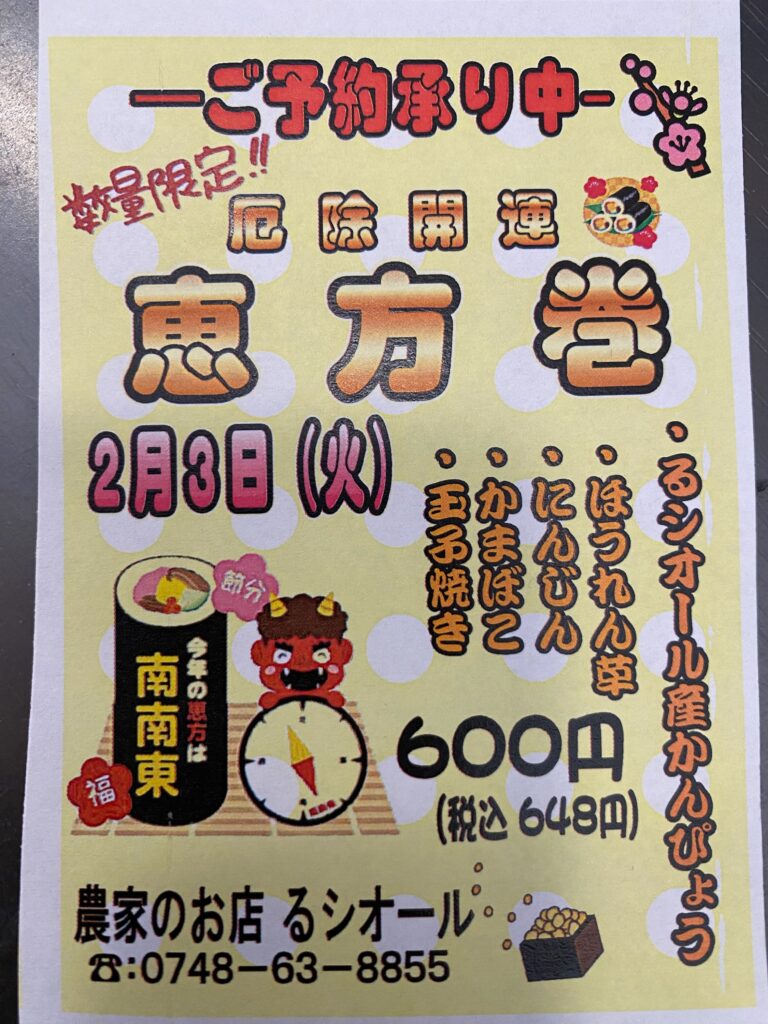 ーご予約承り中-
数量限定!!
厄除開運
恵方巻
2月3日(火)
・るシオール産かんぴょう
・ほうれん草
・にんじん
・かまぼこ
・玉子焼き
節分
今年の恵方は
南南東
福
600円
(税込 648円)
農家のお店 るシオール
☎:0748-63-8855